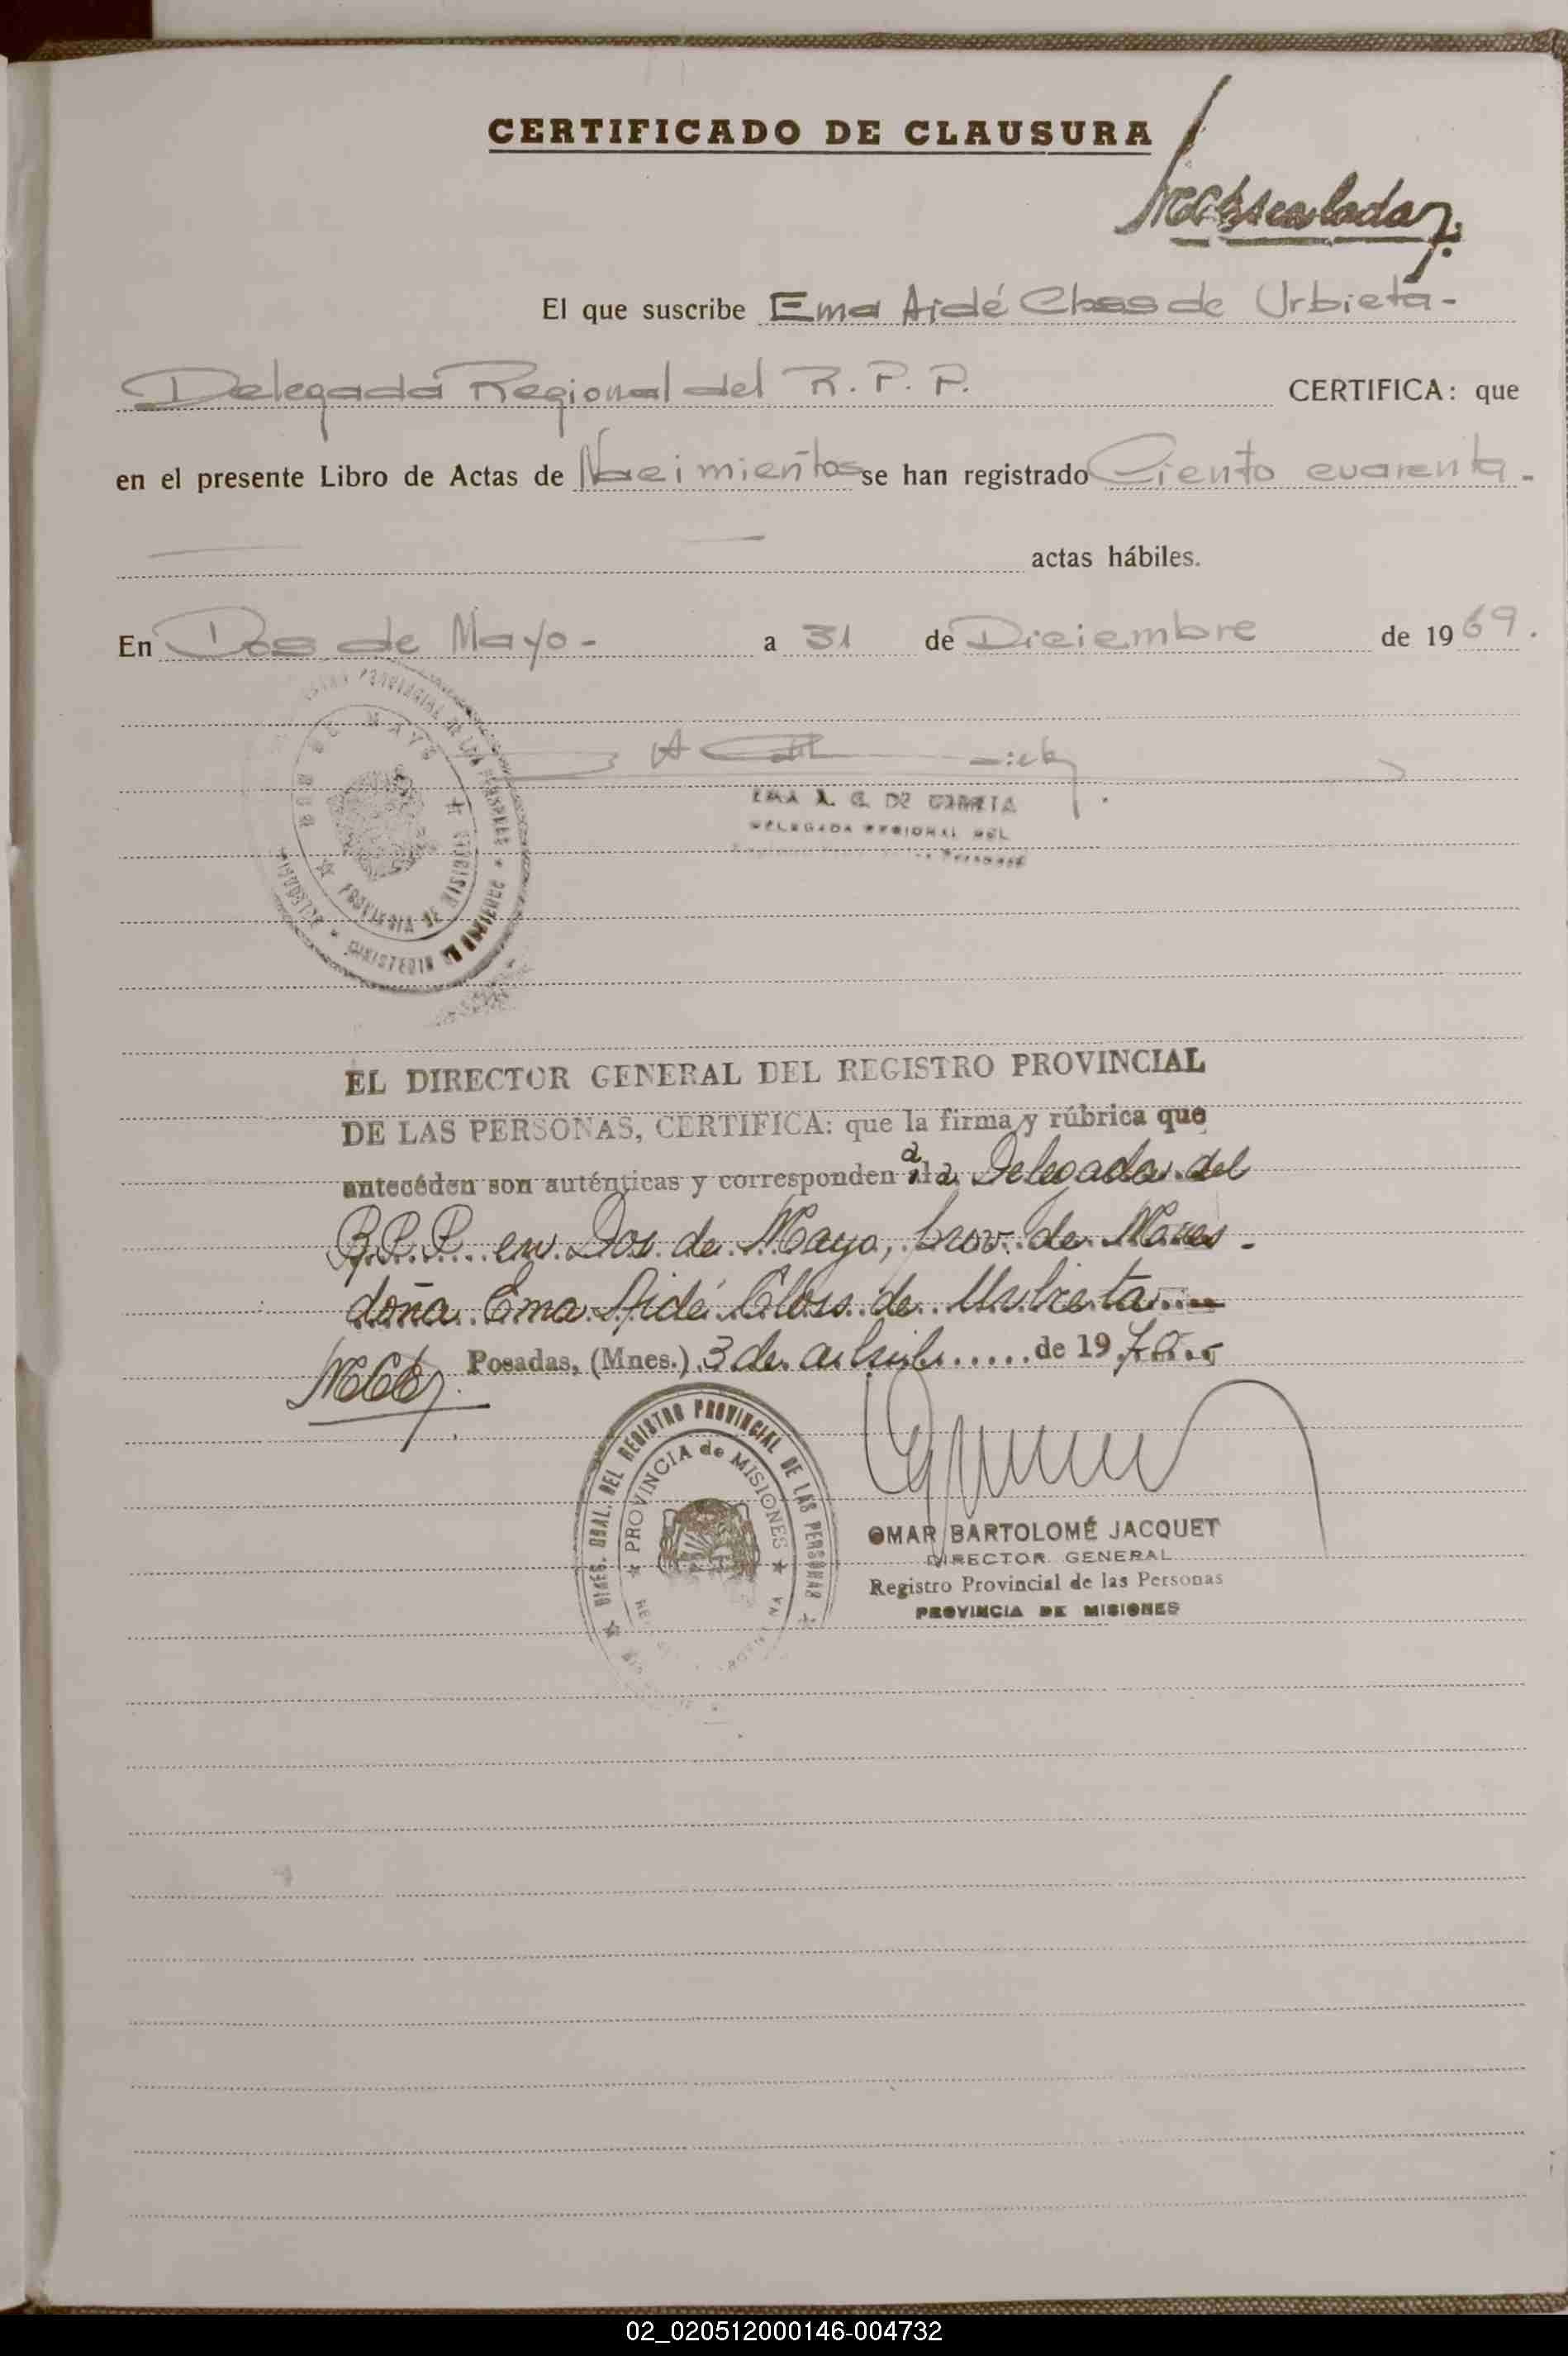 CERTIFICADO DE CLAUSURA
El que suscribe Ema Aidé de Urbieta-
Delegada Regional del R. P. P. CERTIFICA: que
en el presente Libro de Actas de Nacimientos se han registrado Ciento cuarenta-
actas hábiles.
En Dos de Mayo- a 31 de Diciembre de 1969.
DELEGADA REGIONAL DEL
EL DIRECTOR GENERAL DEL REGISTRO PROVINCIAL
DE LAS PERSONAS, CERTIFICA: que la firma y rúbrica que
antecéden son auténticas y corresponden a la Delegada del
R.P.P. en Dos de Mayo, prov. de
doña Ema Aidé de Urbieta
Posadas, (Mnes.) 3 de abril de 1970
DIREC. GRAL. DEL REGISTRO PROVINCIAL DE LAS PERSONAS
PROVINCIA de MISIONES
OMAR BARTOLOMÉ JACQUET
DIRECTOR GENERAL
Registro Provincial de las Personas
PROVINCIA DE MISIONES
02_020512000146-004732